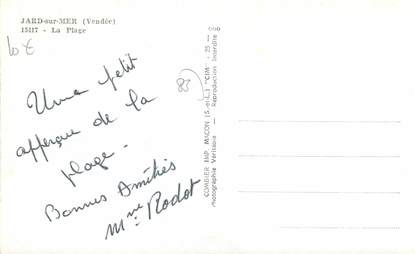 JARD-sur-MER (Vendée)
15117 - La Plage
10 €
85)
Une petit
apperçue de la
plage -
Bonnes Amitiés
Mme Rodot
COMBIER IMP. MACON (S.-et-L.) "CIM"
Photographie Véritable - Reproduction Interdite